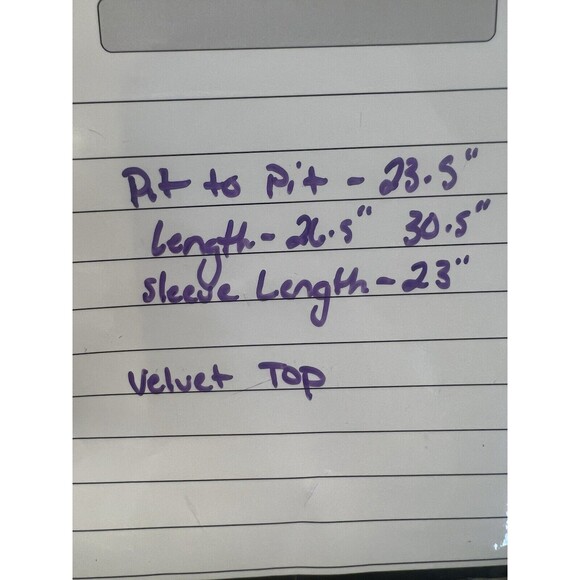 Pit to Pit - 23.5"
Length - 26.5" 30.5"
Sleeve Length - 23"
Velvet Top